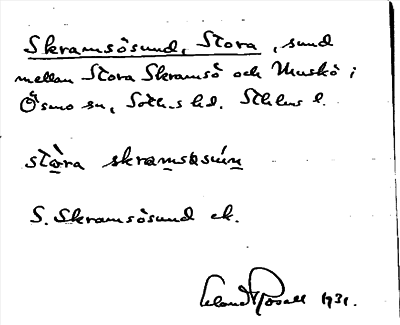 Skramsösund, Stora, sund
mellan Stora Skramsö och Muskö i
Ösmo sn, Soth.s hd. Sthlms l.
stòra skramsəsún̄n
S. Skramsösund ek.
1931.